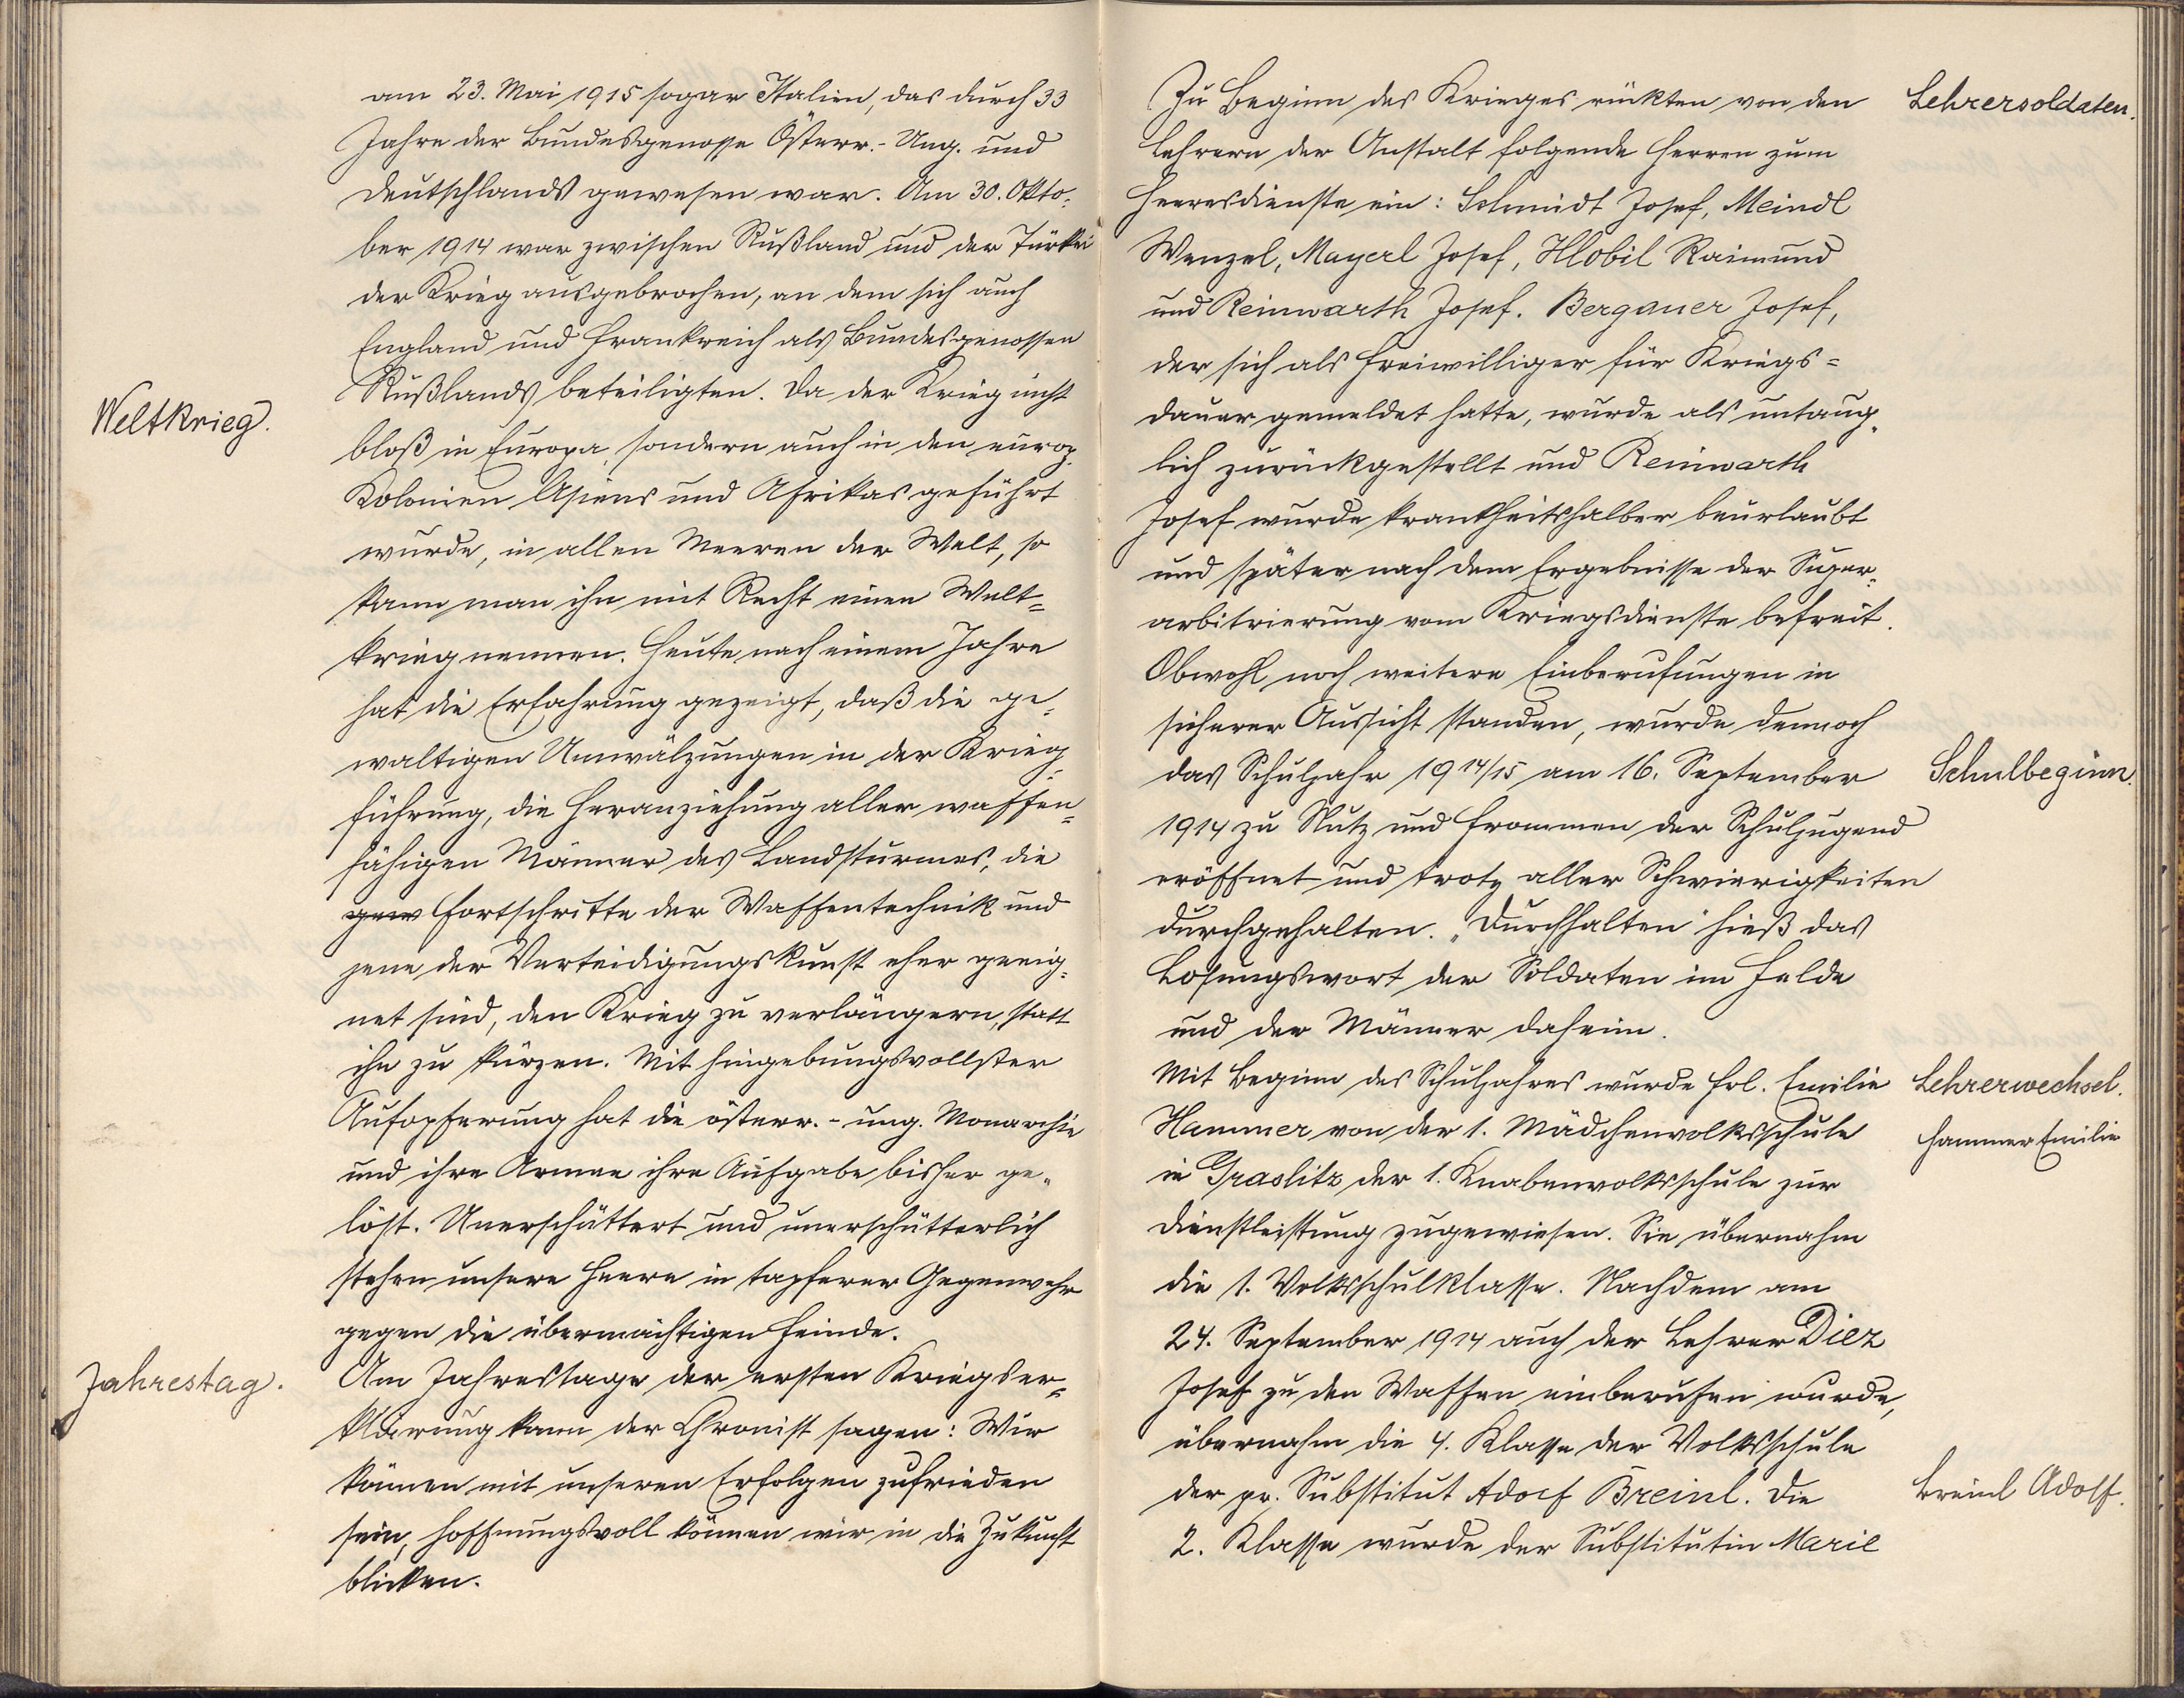 am 23. Mai 1915 sogar Italien, das durch 33
Jahre der Bundesgenosse Österr.-Ung. und
Deutschlands gewesen war. Am 30. Okto-
ber 1914 war zwischen Rußland und der Türkei
der Krieg ausgebrochen, an dem sich auch
England und Frankreich als Bundesgenossen
Rußlands beteiligten. Da der Krieg nicht
Weltkrieg.
bloß in Europa, sondern auch in den europ.
Kolonien Asiens und Afrikas geführt
wurde, in allen Meeren der Welt, so
kann man ihn mit Recht einen Welt-
krieg nennen. Heute nach einem Jahre
hat die Erfahrung gezeigt, daß die ge-
waltigen Umwälzungen in der Krieg-
führung, die Heranziehung aller waffen-
fähigen Männer des Landsturmes, die
gew Fortschritte der Waffentechnik und
jene der Verteidigungskunst eher geeig-
net sind, den Krieg zu verlängern, statt
ihn zu kürzen. Mit hingebungsvollster
Aufopferung hat die österr.-ung. Monarchie
und ihre Armee ihre Aufgabe bisher ge-
löst. Unerschüttert und unerschütterlich
stehen unsere Heere in tapferer Gegenwehr
gegen die übermächtigen Feinde.
Jahrestag.
Am Jahrestage der ersten Kriegser-
klärung kann der Chronist sagen: Wir
können mit unseren Erfolgen zufrieden
sein, hoffnungsvoll können wir in die Zukunft
blicken.
Zu Beginn des Krieges rückten von den
Lehrersoldaten.
Lehrern der Anstalt folgende Herren zum
Heeresdienste ein: Schmidt Josef, Meindl
Wenzel, Mayerl Josef, Hlobil Raimund
und Reinwarth Josef. Bergauer Josef,
der sich als Freiwilliger für Kriegs-
dauer gemeldet hatte, wurde als untaug-
lich zurückgestellt und Reinwarth
Josef wurde krankheitshalber beurlaubt
und später nach dem Ergebnisse der Super-
arbitrierung vom Kriegsdienste befreit.
Obwohl noch weitere Einberufungen in
sicherer Aussicht standen, wurde dennoch
das Schuljahr 1914/15 am 16. September
Schulbeginn.
1914 zu Nutz und Frommen der Schuljugend
eröffnet und trotz aller Schwierigkeiten
durchgehalten. „Durchhalten" hieß das
Losungswort der Soldaten im Felde
und der Männer daheim.
Mit Beginn des Schuljahres wurde Frl. Emilie
Lehrerwechsel.
Hammer von der 1. Mädchenvolksschule
Hammer Emilie
in Graslitz der 1. Knabenvolksschule zur
Dienstleistung zugewiesen. Sie übernahm
die 1. Volksschulklasse. Nachdem am
24. September 1914 auch der Lehrer Diez
Josef zu den Waffen einberufen wurde,
übernahm die 4. Klasse der Volksschule
der pr. Substitut Adolf Breinl. Die
Breinl Adolf.
2. Klasse wurde der Substitutin Marie